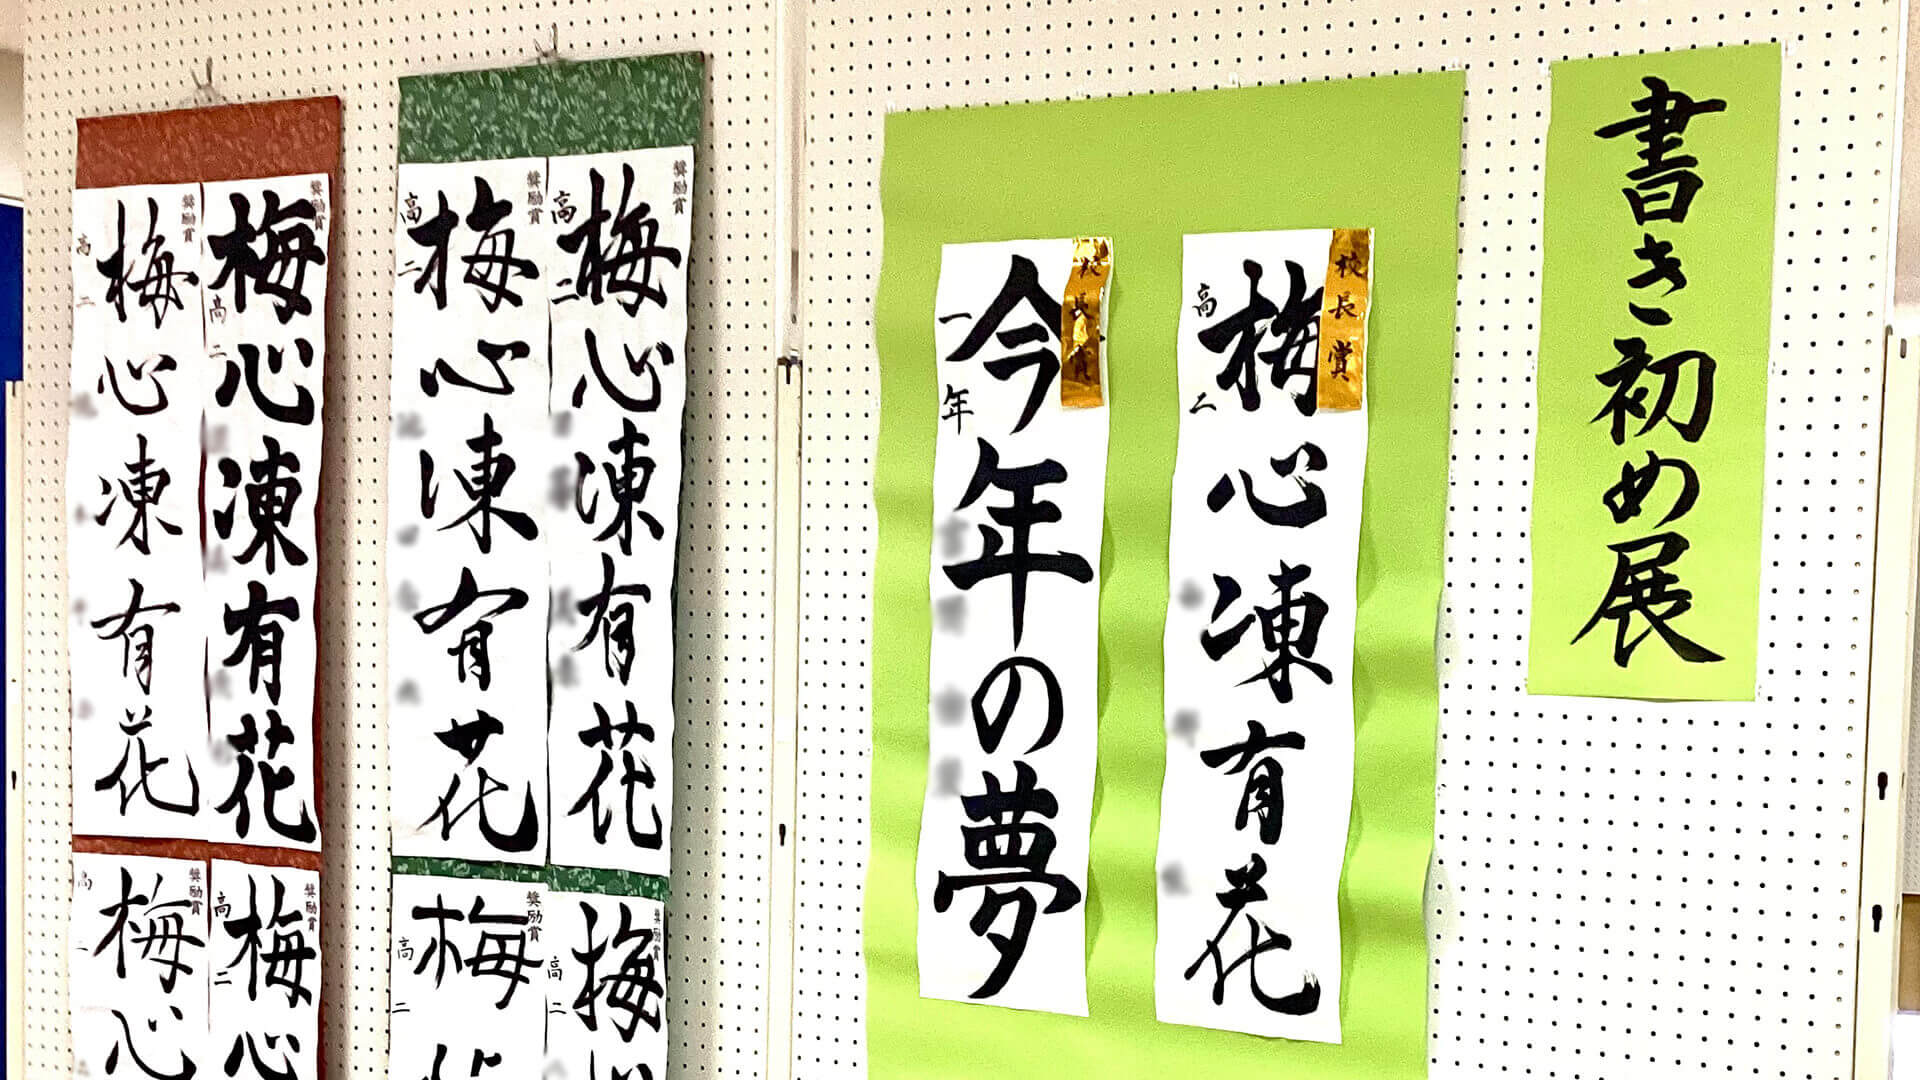 書き初め展
校長賞
梅心凍有花
高二
校長賞
今年の夢
一年
奨励賞
梅心凍有花
高二
奨励賞
梅心凍有花
高二
奨励賞
梅心凍有花
高二
奨励賞
梅心凍有花
高二
奨励賞
梅
高二
奨励賞
梅
高二
奨励賞
梅心
高二
奨励賞
梅心
高二